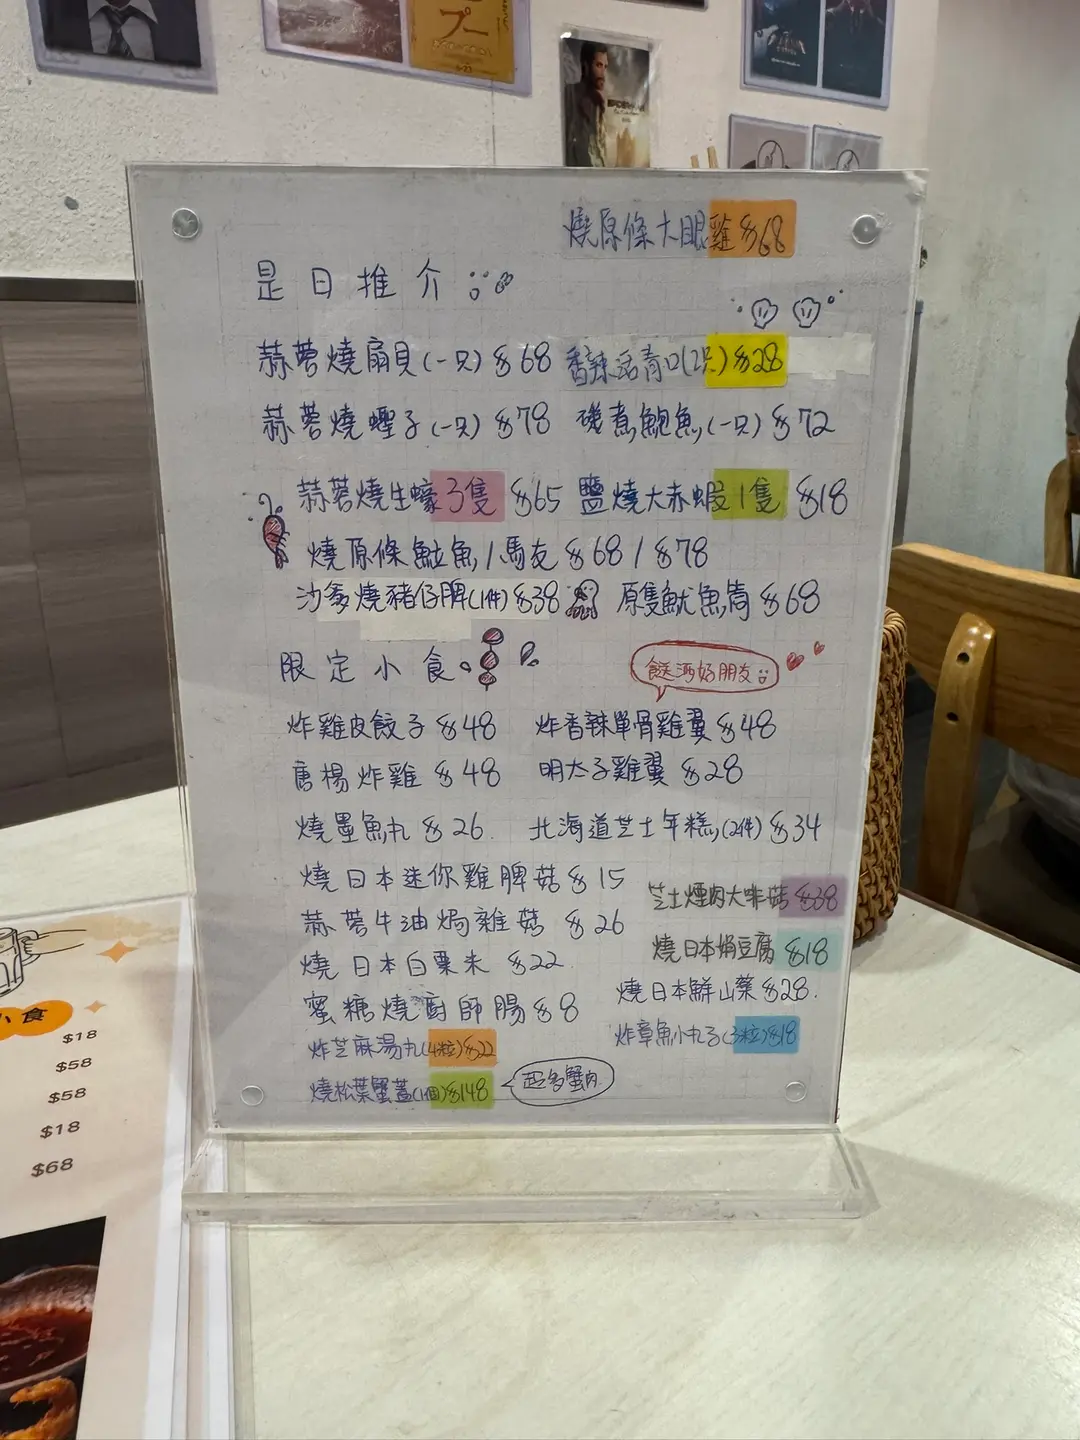 燒原條大眼雞 $68
是日推介
蒜蓉燒扇貝(一只) $68 香辣活青口(2只) $28
蒜蓉燒蟶子(一只) $78 磯煮鮑魚(一只) $72
蒜蓉燒生蠔3隻 $65 鹽燒大赤蝦1隻 $18
燒原條魷魚/馬友 $68/$78
沙爹燒豬仔脾(1件) $38 原隻魷魚筒 $68
限定小食
餸酒好朋友
炸雞皮餃子 $48 炸香辣單骨雞翼 $48
唐楊炸雞 $48 明太子雞翼 $28
燒墨魚丸 $26. 北海道芝士年糕(2件) $34
燒日本迷你雞脾菇 $15
芝士煙肉大啡菇 $38
蒜蓉牛油焗雜菇 $26
燒日本絹豆腐 $18
燒日本白粟米 $22
燒日本鮮山藥 $28.
蜜糖燒廚師腸 $8
炸章魚小丸子(3粒) $18
炸芝麻湯丸(4粒) $22
燒松葉蟹蓋(1個) $148
超多蟹肉
小食
$18
$58
$58
$18
$68
プー